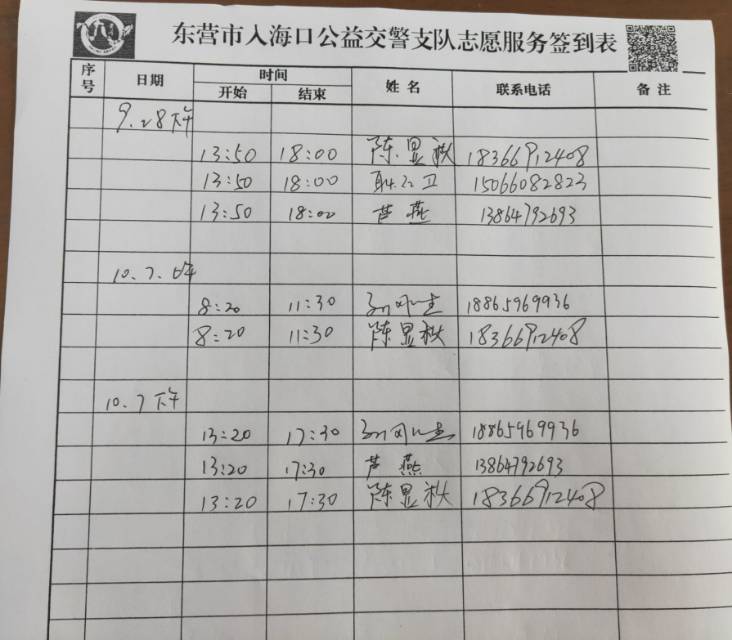 东营市入海口公益交警支队志愿服务签到表
序号 日期 时间 姓名 联系电话 备注
开始 结束
9.28下午
13:50 18:00 陈显秋 18366912408
13:50 18:00 耿 卫 15066082823
13:50 18:00 芦燕 13864792693
10.7.上午
8:20 11:30 18865969936
8:20 11:30 陈显秋 18366912408
10.7下午
13:20 17:30 18865969936
13:20 17:30 芦燕 13864792693
13:20 17:30 陈显秋 18366912408